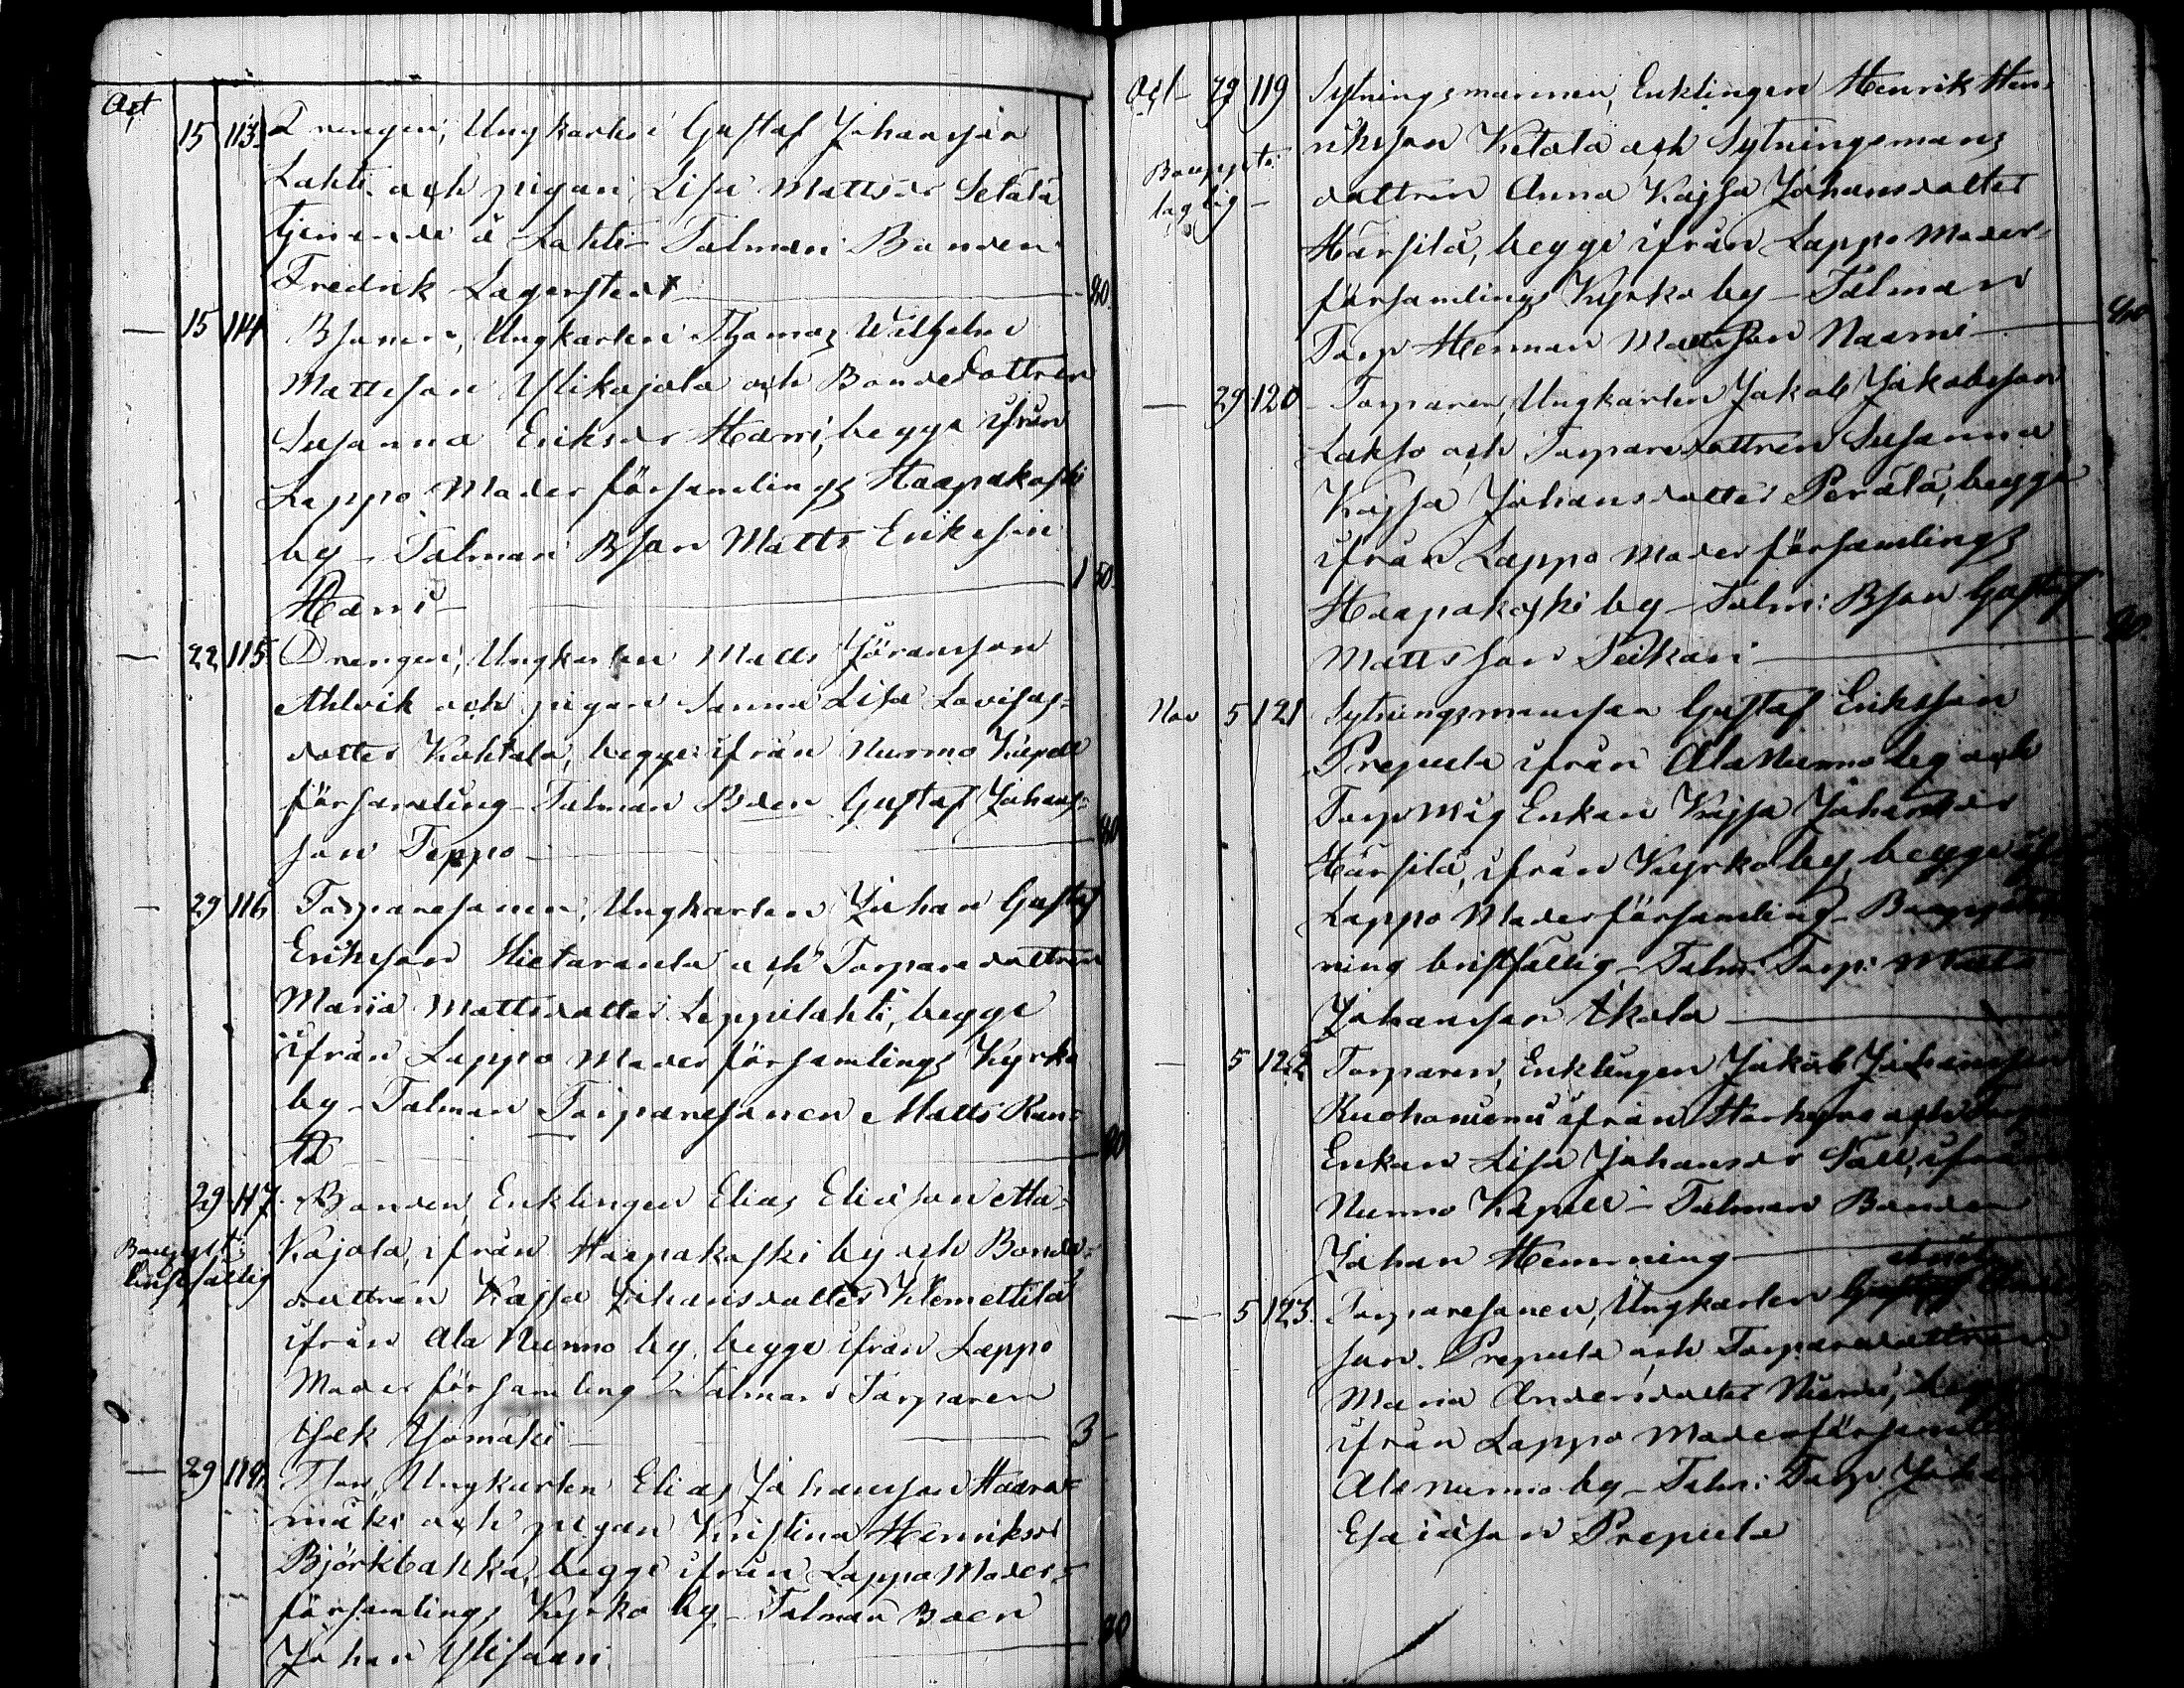 Oct
15 113. Drengen, Ungkarlen Gustaf Johansson
Lahti och pigan Lisa Mattsdr Setälä
tjenande å Lahti – Talman Bonden
Fredrik Lagerstedt – 80.
– 15 114 Bsonen, Ungkarlen Thomas Wilhelm
Mattsson Ylikojola och Bondedottren
Susanna Eriksdr Harri, begge ifrån
Lappo Moder församlings Haapakoski
by – Talman Bson Matts Eriksson
Harri – 1 50.
– 22 115. Drengen, Ungkarlen Matts Göransson
Ahlvik och pigan Sanna Lisa Lovisas-
dotter Kohtala, begge ifrån Nurmo Kapell
församling – Talman Bden Gustaf Johans-
son Teppo – 80
– 29 116 Torparesonen, Ungkarlen Johan Gustaf
Eriksson Hietaranta och Torparedottren
Maria Mattsdotter Leppilahti, begge
ifrån Lappo Moder församlings Kyrko
by – Talman Torparesonen Matts Ran-
ta – 80
29 117. Bonden, Enklingen Elias Eliasson Ala-
Bouppt: bristfällig
Kojola, ifrån Haapakoski by och Bonde-
dottren Kajsa Johansdotter Klemettilä
ifrån Ala Nurmo by, begge ifrån Lappo
Moder församling – Talman Torparen
Isak Isomäki – 3 –
– 29 118. Ungkarlen Elias Johansson Haara-
mäki och pigan Kristina Henriksdr
Björkbacka, begge ifrån Lappo Moder-
församlings Kyrko by – Talman Bden
Johan Ylisaari 80
Oct – 29 119 Sytningsmannen, Enklingen Henrik Hen-
Bouppt: laglig –
riksson Ketola och Sytningsmans
dottren Anna Kajsa Johansdotter
Härsilä, begge ifrån Lappo Moder-
församlings Kyrko by – Talman
Torp Herman Mattsson Naarni – 40
– 29 120 – Torparen, Ungkarlen Jakob Jakobsson
Lakso och Torparedottren Susanna
Kajsa Johansdotter Perälä, begge
ifrån Lappo Moder församlings
Haapakoski by – Talm: Bson Gustaf
Mattsson Pelkari – 80.
Nov 5 121 Sytningsmanson Gustaf Eriksson
Prepula ifrån Ala Nurmo by och
Torp Måg Enkan Kajsa Johansdr
Härsilä, ifrån Kyrko by, begge
Lappo Moderförsamling – Bouppteck-
ning bristfällig – Talm: Torp: Matts
Johansson Ikola –
– 5 122 Torparen, Enklingen Jakob Johansson
ifrån Storkyro och Torp
Enkan Lisa Johansdr Sall, ifrån
Nurmo Kapell – Talman Bonden
Johan Hemming –
– 5 123. Torparesonen, Ungkarlen Gustaf
son Prepula och Torparedottren
Maria Andersdotter Niemi, begge
ifrån Lappo Moderförsamlings
Ala Nurmo by – Talm: Torp Johan
Esaiasson Prepula